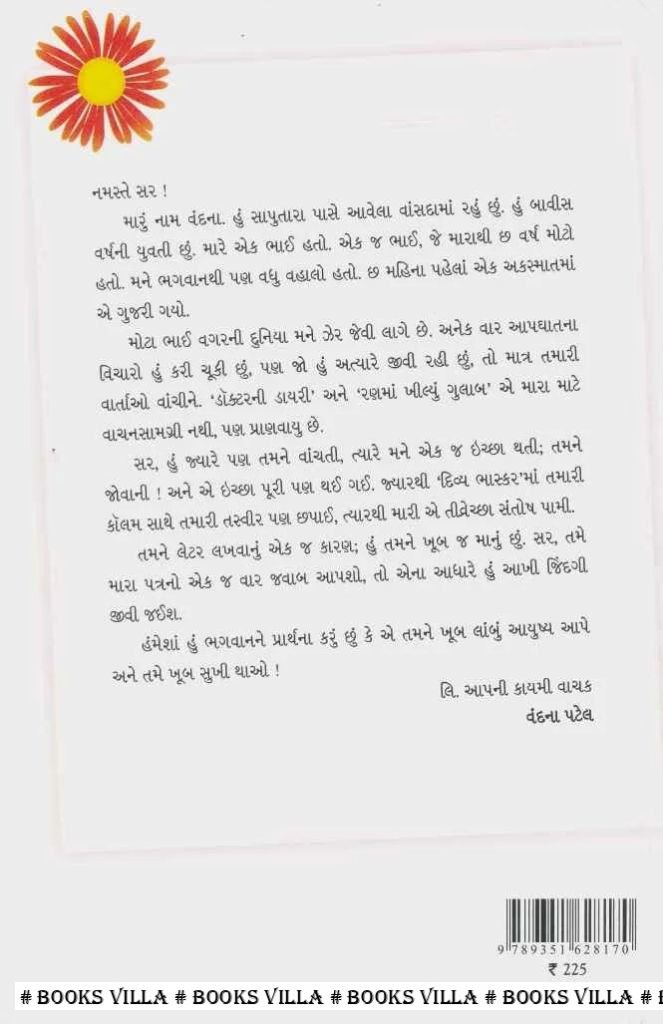 નમસ્તે સર !
મારું નામ વંદના. હું સાપુતારા પાસે આવેલા વાંસદામાં રહું છું. હું બાવીસ
વર્ષની યુવતી છું. મારે એક ભાઈ હતો. એક જ ભાઈ, જે મારાથી છ વર્ષ મોટો
હતો. મને ભગવાનથી પણ વધુ વહાલો હતો. છ મહિના પહેલાં એક અકસ્માતમાં
એ ગુજરી ગયો.
મોટા ભાઈ વગરની દુનિયા મને ઝેર જેવી લાગે છે. અનેક વાર આપઘાતના
વિચારો હું કરી ચૂકી છું, પણ જો હું અત્યારે જીવી રહી છું, તો માત્ર તમારી
વાર્તાઓ વાંચીને. ‘ડૉક્ટરની ડાયરી’ અને ‘રણમાં ખીલ્યું ગુલાબ’ એ મારા માટે
વાચનસામગ્રી નથી, પણ પ્રાણવાયુ છે.
સર, હું જ્યારે પણ તમને વાંચતી, ત્યારે મને એક જ ઇચ્છા થતી; તમને
જોવાની ! અને એ ઇચ્છા પૂરી પણ થઈ ગઈ. જ્યારથી ‘દિવ્ય ભાસ્કર’માં તમારી
કૉલમ સાથે તમારી તસ્વીર પણ છપાઈ, ત્યારથી મારી એ તીવ્રેચ્છા સંતોષ પામી.
તમને લેટર લખવાનું એક જ કારણ; હું તમને ખૂબ જ માનું છું. સર, તમે
મારા પત્રનો એક જ વાર જવાબ આપશો, તો એના આધારે હું આખી જિંદગી
જીવી જઈશ.
હંમેશાં હું ભગવાનને પ્રાર્થના કરું છું કે એ તમને ખૂબ લાંબું આયુષ્ય આપે
અને તમે ખૂબ સુખી થાઓ !
લિ. આપની કાયમી વાચક
વંદના પટેલ
9 789351 628170
₹ 225
# BOOKS VILLA # BOOKS VILLA # BOOKS VILLA # BOOKS VILLA # B